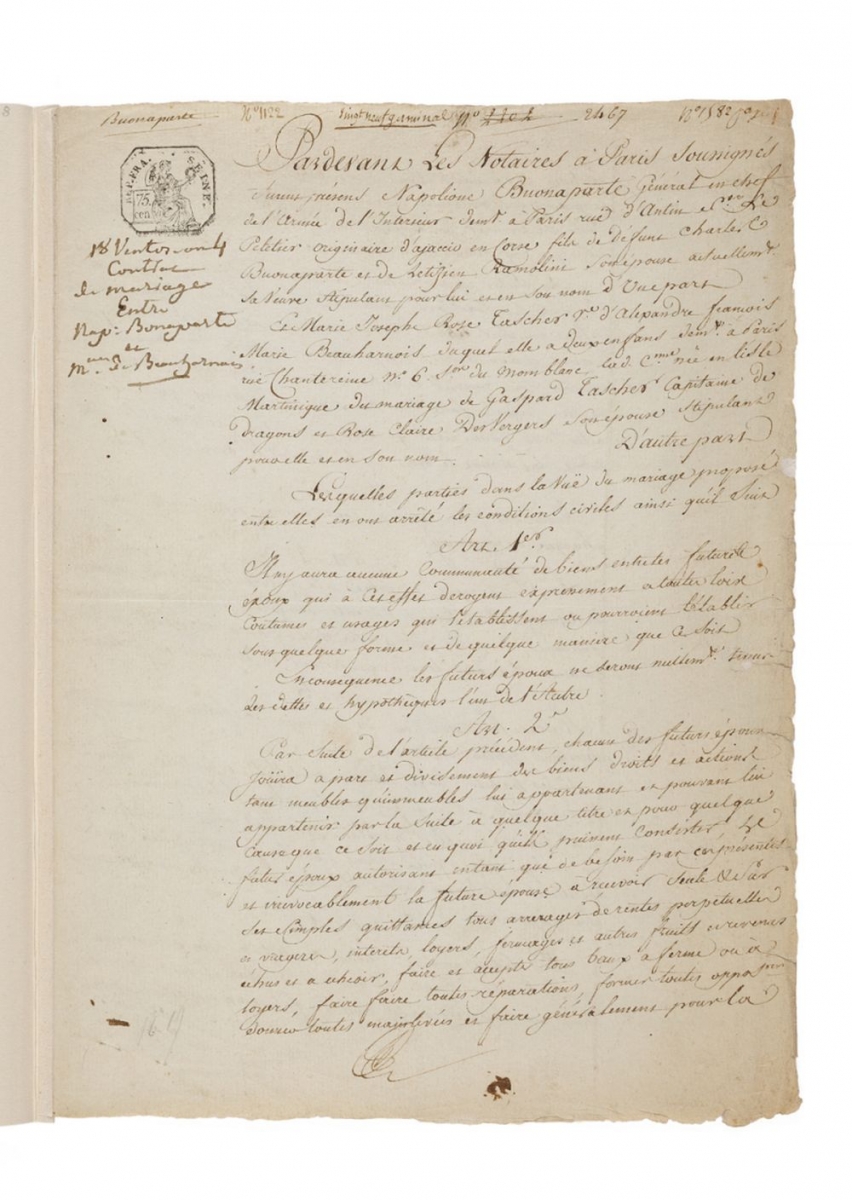 Buonaparte
No 1122
vingt neuf germinal
2467
REP. FRA.
SEINE.
75
cen
18 Ventos an 4
Contrat
de mariage
Entre
Nap: Bonaparte
et
Mme De Beauharnais
Pardevant Les Notaires à Paris Soussignés
furent présens Napolione Buonaparte Général en chef
de l'Armée de l'Interieur demt à Paris rue d'Antin Son Le
Peletier originaire d'ajaccio en Corse fils de défunt Charles C
Buonaparte et de Letizien Ramolini Son épouse actuellemt
sa Veuve Stipulant pour lui et en son nom d'Une part
Et Marie Joseph Rose Tascher Ve d'Alexandre francois
Marie Beauharnois duquel elle a deux enfans demte à Paris
rüe Chantereine No 6 Son du Montblanc née en l'isle
Martinique du mariage de Gaspard Tascher Capitaine de
Dragons et Rose Claire Des Vergers Son épouse Stipulant
pour elle et en Son nom. D'autre part
Lesquelles parties dans la Vuë du mariage proposé
entre elles en ont arrêté les conditions civiles ainsi qu'il Suit
Art. 1er
Il n'y aura aucune Communauté de biens entre les futurs
époux qui à Cet effet derogent expressement à toutes loix
Coutumes et usages qui l'établissent ou pourroient l'établir
Sous quelque forme et de quelque maniere que Ce Soit
En consequence les futurs époux ne seront nullemt tenus
des dettes et hypotheques l'un de l'Autre.
Art. 2e
Par Suite de l'article précédent, chacun des futurs époux
Joüira a part et divisement des biens droits et actions
tant meubles qu'immeubles lui appartenant et pouvant lui
appartenir par la Suite à quelque titre et pour quelque
Cause que ce Soit et en quoi qu'ils puissent Consister, Le
futur époux autorisant en tant que de besoin par ces présentes
et irrevocablement la future épouse à recevoir Seule & Sur
Ses Simples quittances tous arrerages de rentes perpetuelles
et viageres, interets, loyers, fermages et autres fruits et revenus
echus et a echeoir, faire et accepter tous baux a ferme ou à
loyers, faire faire toutes réparations, former toutes oppopons
donner toutes mainlevées et faire généralement pour la